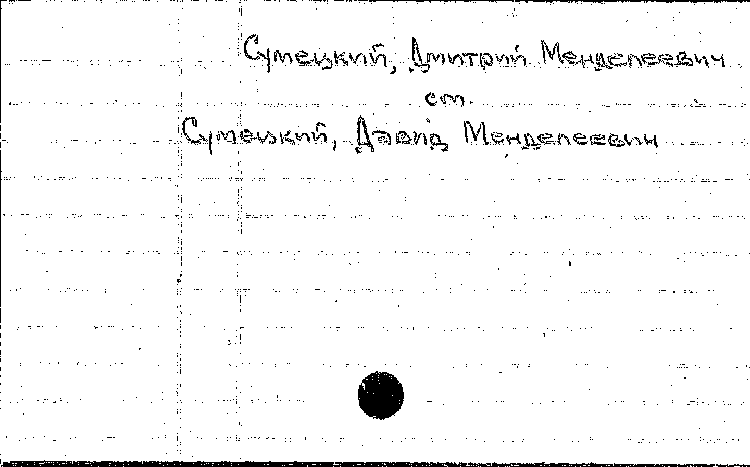 Сумецкий, Дмитрий Менделеевич
см.
Сумецкий, Давид Менделеевич